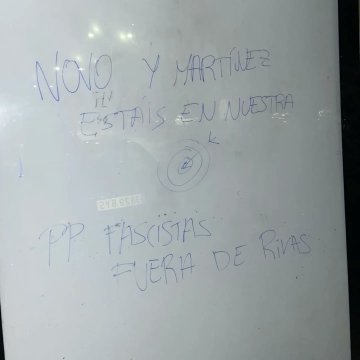 NOVO Y MARTÍNEZ
ESTÁIS EN NUESTRA
K
PP FASCISTAS
FUERA DE RIVAS